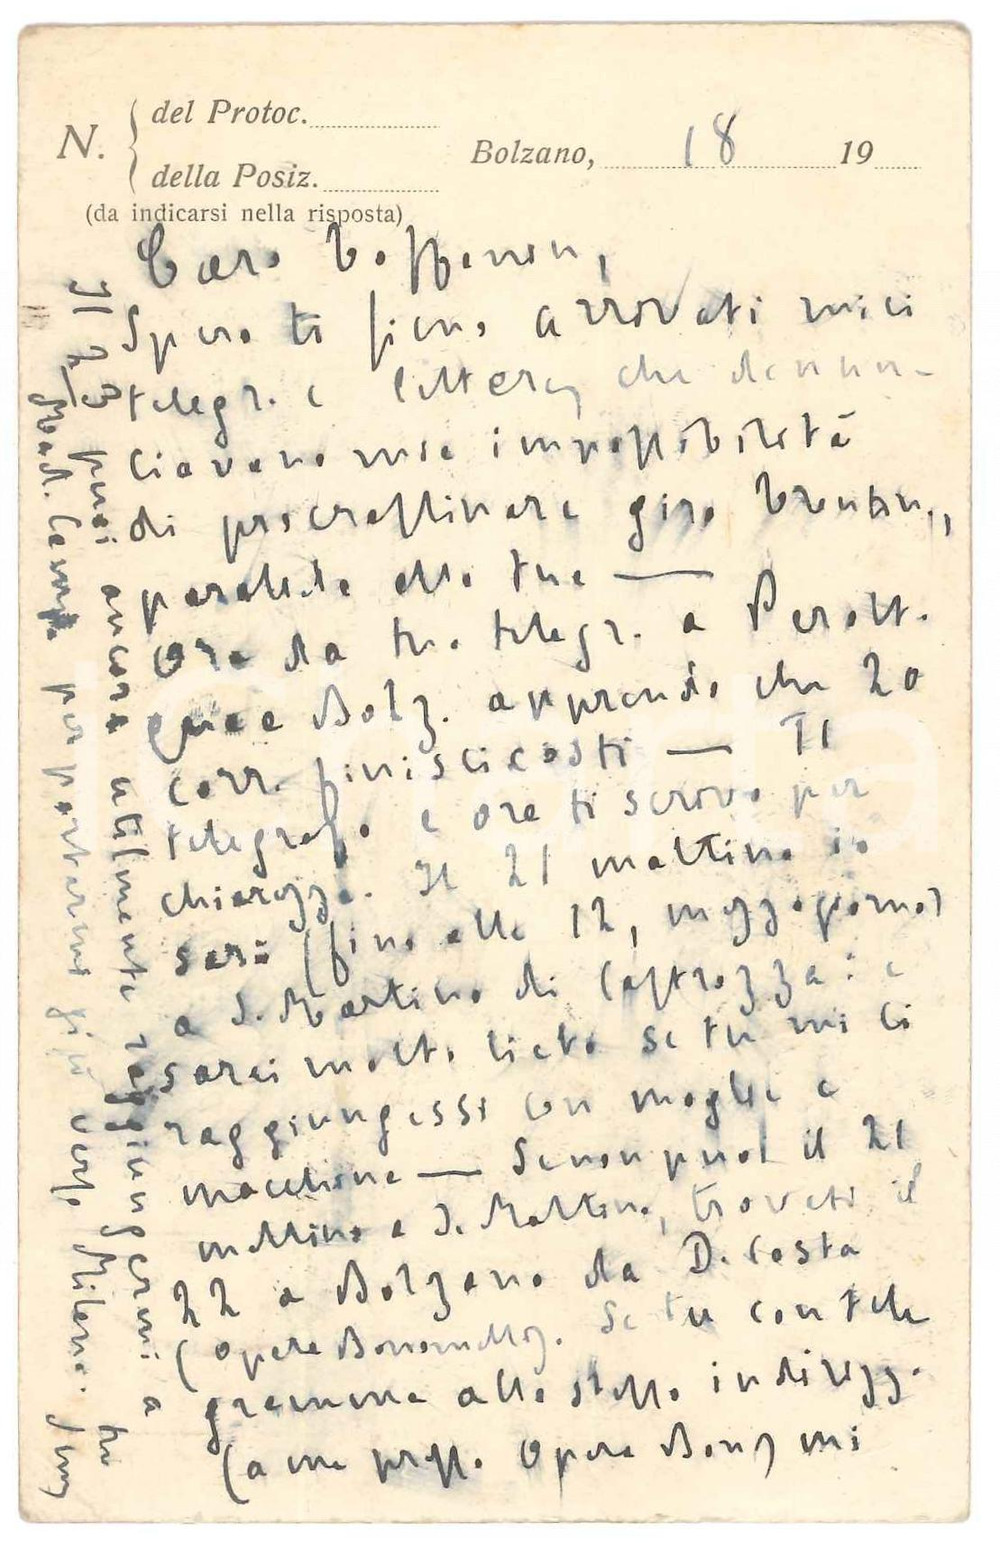 N. del Protoc.
della Posiz.
(da indicarsi nella risposta)
Bolzano, 18 19
Caro
Spero ti siano arrivati miei
telegr. e lettera, che denun-
ciavano mia impossibilità
di procrastinare giro trentino,
parallelo alla tua —
Ora da tuo telegr. a
Bolz. apprendo che 20
corr. finisci costì — Ti
telegrafo e ora ti scrivo per
chiarezza. Il 21 mattina io
sarò (fino alle 12, mezzogiorno)
a S. Martino di Castrozza: e
sarei molto lieto se tu mi ci
raggiungessi con moglie e
macchina — Se non puoi il 21
mattina a S. Martino, trovati il
22 a Bolzano da D. Costa
(Opera Bonomelli). Se tu con tele
gramma allo stesso indirizz.
(a me presso Opera Bon) mi
Il 23 puoi ancora utilmente raggiungermi a
Mad. Campo per portarmi giù verso Milano. tuo